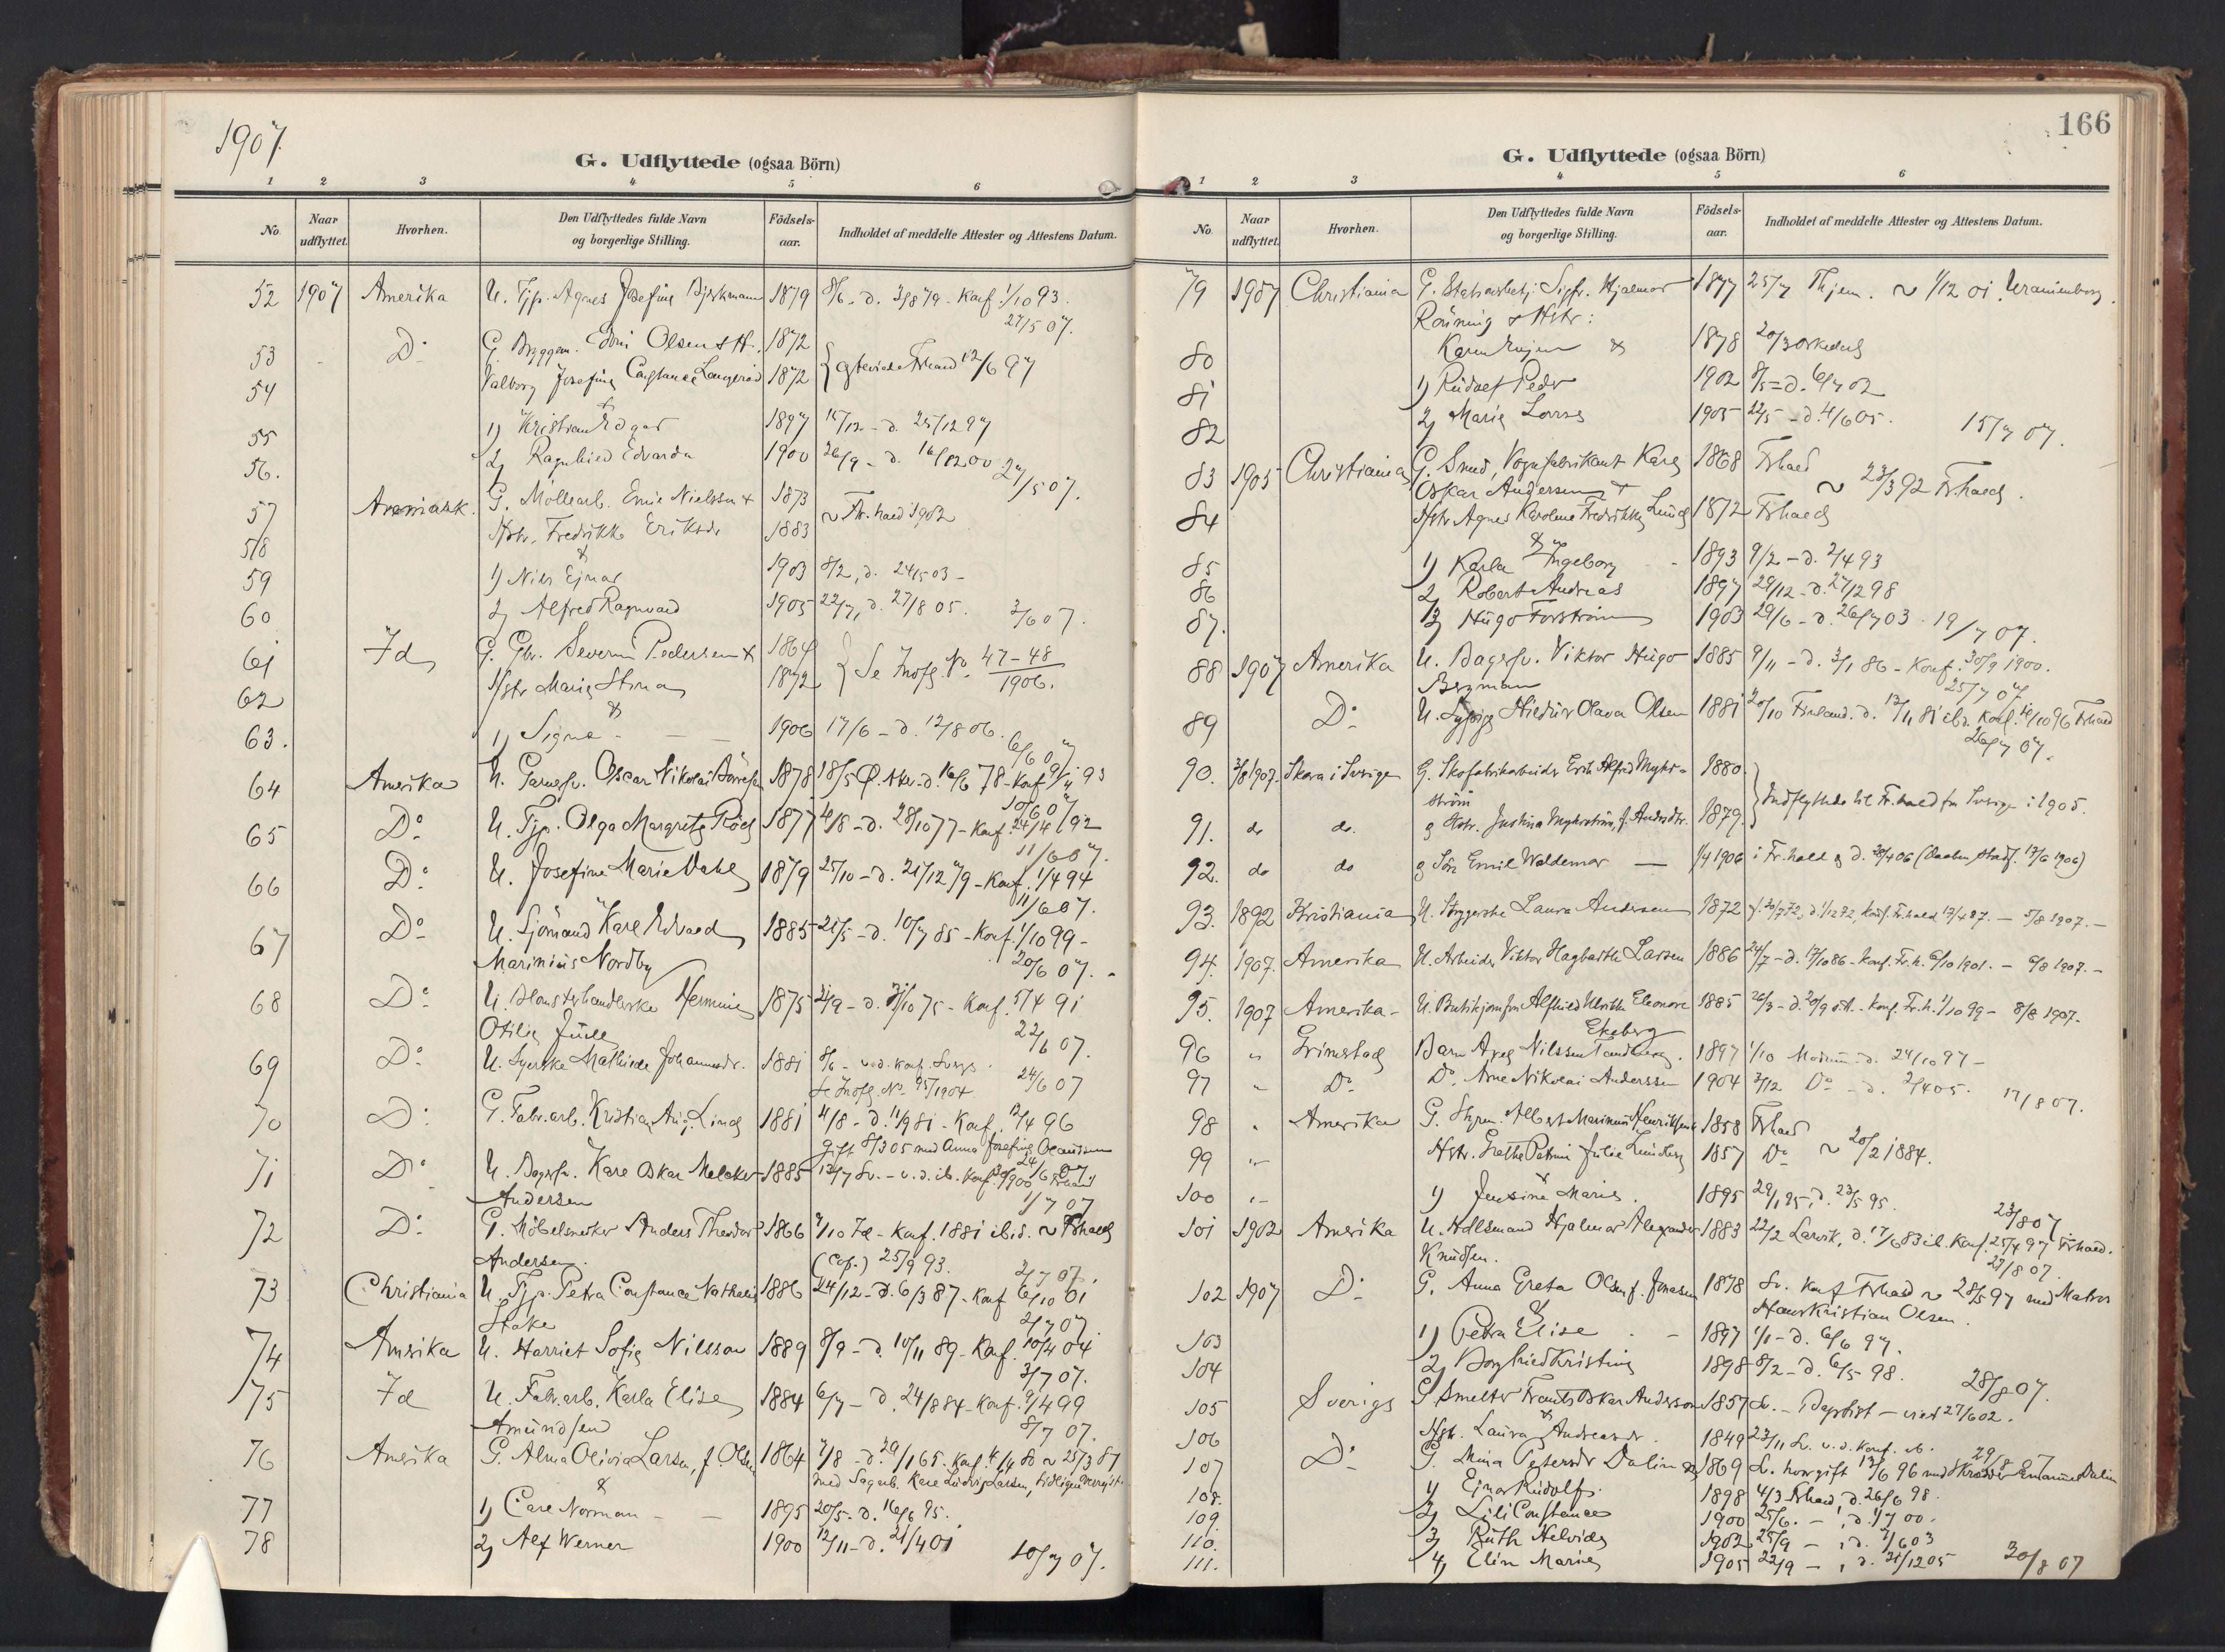 1907.
G. Udflyttede (ogsaa Börn)
1 2 3 4 5 6
No. Naar udflyttet. Hvorhen. Den Udflyttedes fulde Navn og borgerlige Stilling. Födsels-aar. Indholdet af meddelte Attester og Attestens Datum.
52 1907 Amerika U. Tjp. Agnes Josefine Bjerkmann 1879 8/6 - d. 3/8 79 - Konf. 1/10 93.
27/5 07.
53 - Do G. Byggm. Edvin Olsen & H. 1872
54 Valborg Josefine Constance Langerød 1872 Frhald 12/6 97
&
55 1) Kristian Edgar 1897 15/12 - d. 25/12 97
56. 2) Ragnhild Edvarda 1900 26/9 - d. 16/12 00 27/5 07.
57 G. Möllearb. Emil Nielssen & 1873
58 Hstr. Fredrikke Eriksdr 1883 ~ Fr.hald 1902
&
59 1) Nils Ejnar 1903 8/2, d. 24/5 03 -
60 2) Alfred Ragnvald 1905 22/7, d. 27/8 05. 3/6 07.
61 Id G. Severin Pedersen & 1864
62 Hstr Marie Stina 1872 Se Indfl. No. 47-48
1906.
&
63. 1) Signe - 1906 17/6 - d. 12/8 06. 6/6 07
64 Amerika U. Oscar Nikolai 1878 18/5 - d. 16/6 78 - Konf 9/4 93
10/6 07
65 Do U. Tjp. Olga Margrete 1877 4/8 - d. 28/10 77 - Konf. 24/4 92
11/6 07.
66 Do U. Josefine Marie Dahl 1879 25/10 - d. 21/12 79 - Konf. 1/4 94
11/6 07.
67 Do U. Sjömand Karl Edvard 1885 21/5 - d. 10/7 85 - Konf. 1/10 99 -
Marinius Nordby 20/6 07.
68 Do U. Blomsterhandlerske Hermine 1875 - Konf. 5/4 91
Otilie Juell 22/6 07.
69 Do U. Syerske Mathilde Johannesdr. 1881 8/6 - v. d. Konf. Sverge.
Se Indfl. No. 95/1904 24/6 07
70 Do G. Fabr.arb. Kristian Aug. Lind 1881 4/8 - d. 11/9 81 - Konf. 12/4 96
Gift 8/3 05 med Anna Josefine
71 Do U. Karl Oskar Melcker 1885 13/7 Sv. - v. d. ib. Konf. 30/9 1900 Frhald
Andersen 1/7 07
72 Do G. Möbelsnekker Anders Theodor 1866 7/10 Id - Konf. 1881 ibid. ~ Frhald
Andersen. 25/9 93. 2/7 07.
73 Christiania U. Tjp. Petra Constance Nathalie 1886 24/12 - d. 6/3 87 - Konf 6/10 01
Stake 2/7 07.
74 Amerika U. Harriet Sofie Nilsson 1889 8/9 - d. 10/11 89 - Konf. 10/4 04
3/7 07.
75 Id U. Fabr.arb. Karla Elise 1884 6/7 - d. 24/8 84 - Konf. 9/4 99
Amundsen 8/7 07.
76 Amerika G. Alma Olivia Larsen, f. Olsen 1864 7/8 - d. 29/1 65. Konf. 4/4 80 ~ 25/3 87
med Sagarb. Karl Ludvig Larsen,
&
77 1) Carl Norman - 1895 20/5 - d. 16/6 95.
78 2) Alf Werner 1900 12/11 - d. 21/4 01
10/7 07.
166
G. Udflyttede (ogsaa Börn)
1 2 3 4 5 6
No. Naar udflyttet. Hvorhen. Den Udflyttedes fulde Navn og borgerlige Stilling. Födsels-aar. Indholdet af meddelte Attester og Attestens Datum.
79 1907 Christiania G. Sigfr. Hjalmar 1877 25/7 Thjem. ~ 1/12 01 Uranienborg.
Rönning & Hstr:
80 Karen & 1878 20/3
81 1) Rudolf Peder 1902 8/5 - d. 6/7 02
82 2) Marie 1905 22/5 - d. 4/6 05. 15/7 07.
83 1905 Christiania G. Smed, Vognfabrikant Karl 1868 Frhald
Oskar Andersen & ~ 23/3 92 Frhald.
84 Hstr Agnes Karoline Fredrikke Lund 1872 Frhald
&
85 1) Karla Ingeborg - 1893 9/2 - d. 2/4 93
86 2) Robert Andreas 1897 29/12 - d. 27/2 98
87. 3) Hugo Forström 1903 29/6 - d. 26/7 03. 19/7 07.
88 1907 Amerika U. Viktor Hugo 1885 9/11 - d. 3/1 86 - Konf. 30/9 1900.
Bergman 25/7 07
89 Do U. Hildur Olava Olsen 1881 20/10 d. 13/11 81 ibd. Konf. 4/10 96 Frhald
26/7 07.
90. 3/8 1907. Skara i Sverige G. Skofabrikarbeider Erik Alfred Myhr- 1880.
ström Indflyttede til Fr.hald fra Sverige i 1905.
91. do do. g Hstr. Justina Myhrström, f. Andersdtr. 1879.
92. do do g Sön Emil Waldemar — 1/4 1906 i Fr.hald
93. 1892 Kristiania U. Strygerske Laura Andersen 1872 f. 20/7 72, d. 1/12 72, Konf. Fr.hald 17/4 87. - 5/8 1907. -
94. 1907. Amerika U. Arbeider Viktor Hagbarth Larsen 1886 24/7 - d. 17/10 86 - Konf. Fr.h. 6/10 1901. - 6/8 1907. -
95. 1907 Amerika - U. Butikjomfru Alfhild Ulrikke Eleonore 1885 26/3 - d. 20/9 - Konf. Fr.h. 1/10 99 - 8/8 1907.
Ekeberg
96 " Grimstad Barn Axel Nilssen Tandberg. 1897 1/10 d. 24/10 97 -
97 " Do Do. Arne Nikolai Anderssen 1904 3/12 Do - d. 2/4 05. 17/8 07.
98 " Amerika G. Styrm. Albert Marinius Henriksen 1858 Frhald
99 " Hstr. Grethe Petrine Julie Lindberg 1857 Do ~ 20/2 1884.
&
100 " 1) Jensine Marie. 1895 29/1 95, d. 23/5 95.
23/8 07
101 1902 Amerika U. Hjalmar Alexander 1883 22/2 Larvik, d. 17/6 83 ib. Konf. 25/4 97 Frhald.
Knudsen. 27/8 07.
102 1907 Do G. Anna Greta Olsen f. Jonasen 1878 Sv. Konf Frhald ~ 28/5 97 med Matros
& Hans Kristian Olsen.
103 1) Petra Elise - 1897 1/1 - d. 6/6 97.
104 2) Borghild Kristine 1898 8/2 - d. 6/5 98. 28/8 07.
105 Sverige G Smelter Frants Oskar Anderson 1857 Sv. - Baptist - viet 27/6 02.
&
106 Hstr. Laura Andreasdr. 1849 23/11 Sv. v. d. Konf. ib. 29/8 07
107 Do G. Mina Petersdr Dalin & 1869 Sv. 13/6 96 med Skrædder Emanuel Dalin
108. 1) Ejnar Rudolf. 1898 4/3 Frhald, d. 26/6 98.
109. 2) Lili Constance 1900 25/6. - , d. 1/7 00.
110. 3) Ruth Helvide 1902 25/9 - , d. 1/6 03
111. 4) Elin Marie 1905 22/9 - , d. 31/12 05 30/8 07